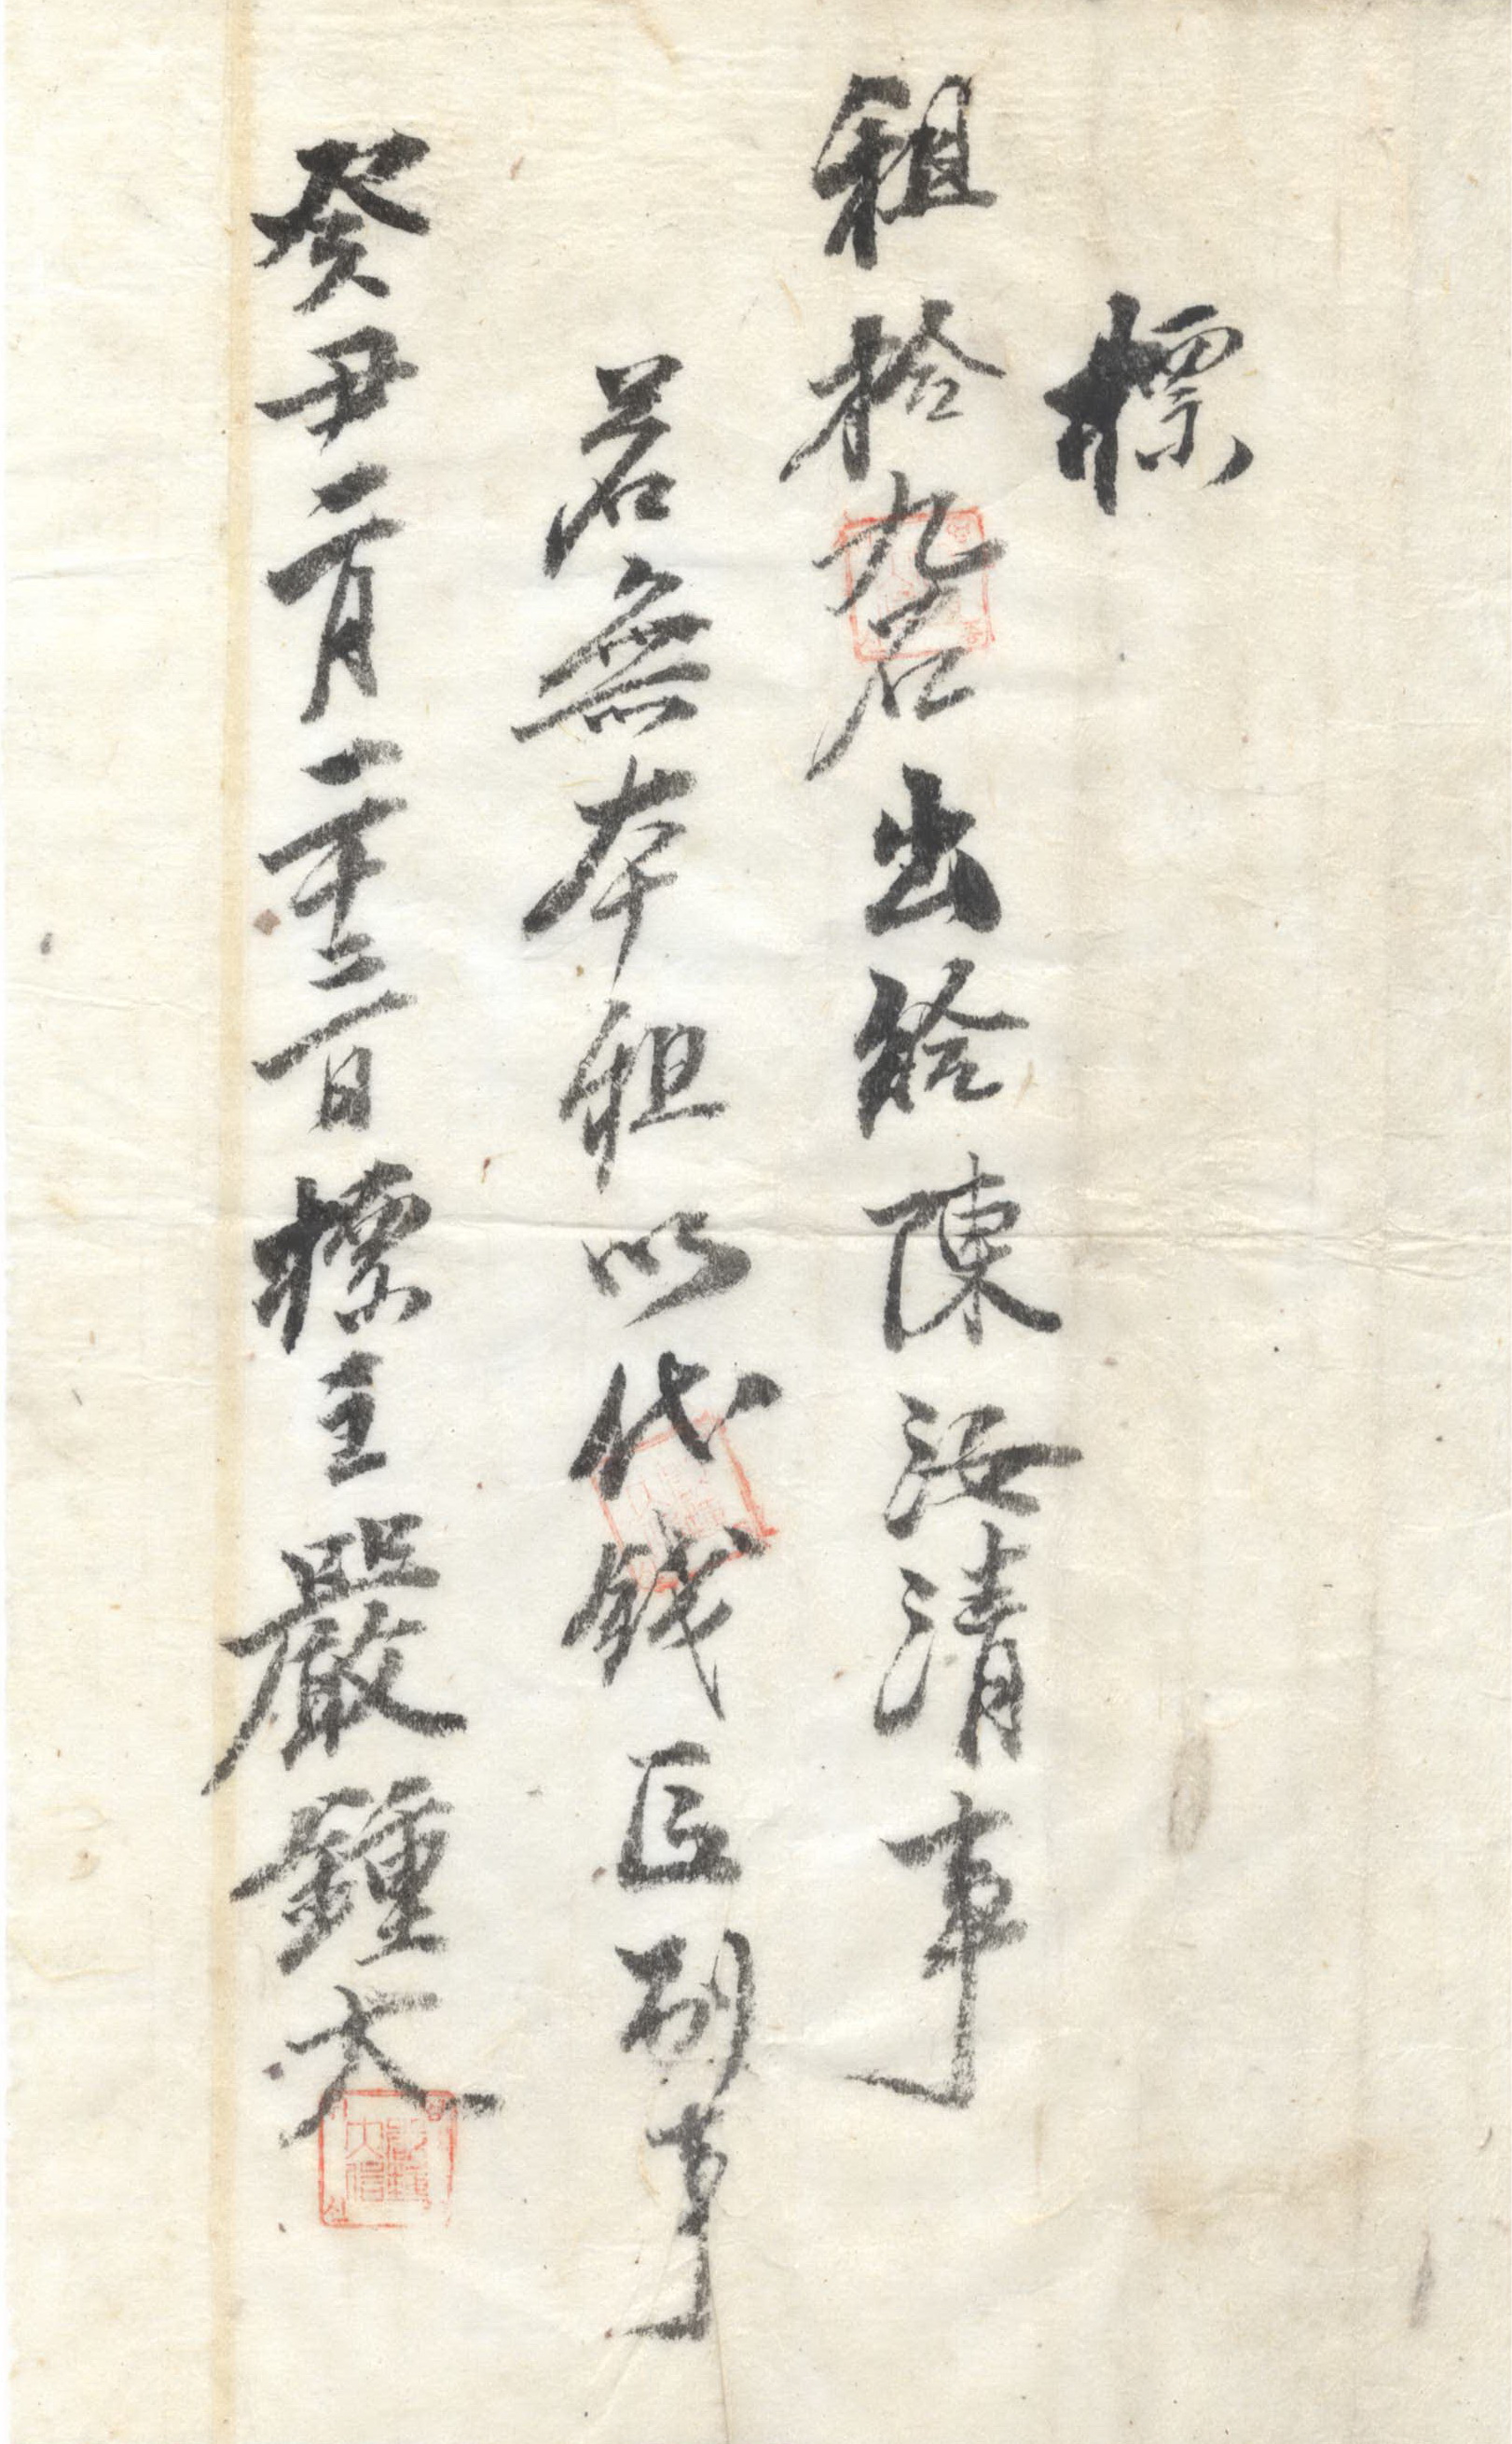 標
租拾九石出給陳汝清事
若無本租以代錢區別事
癸丑二月二十三日標主嚴鍾大